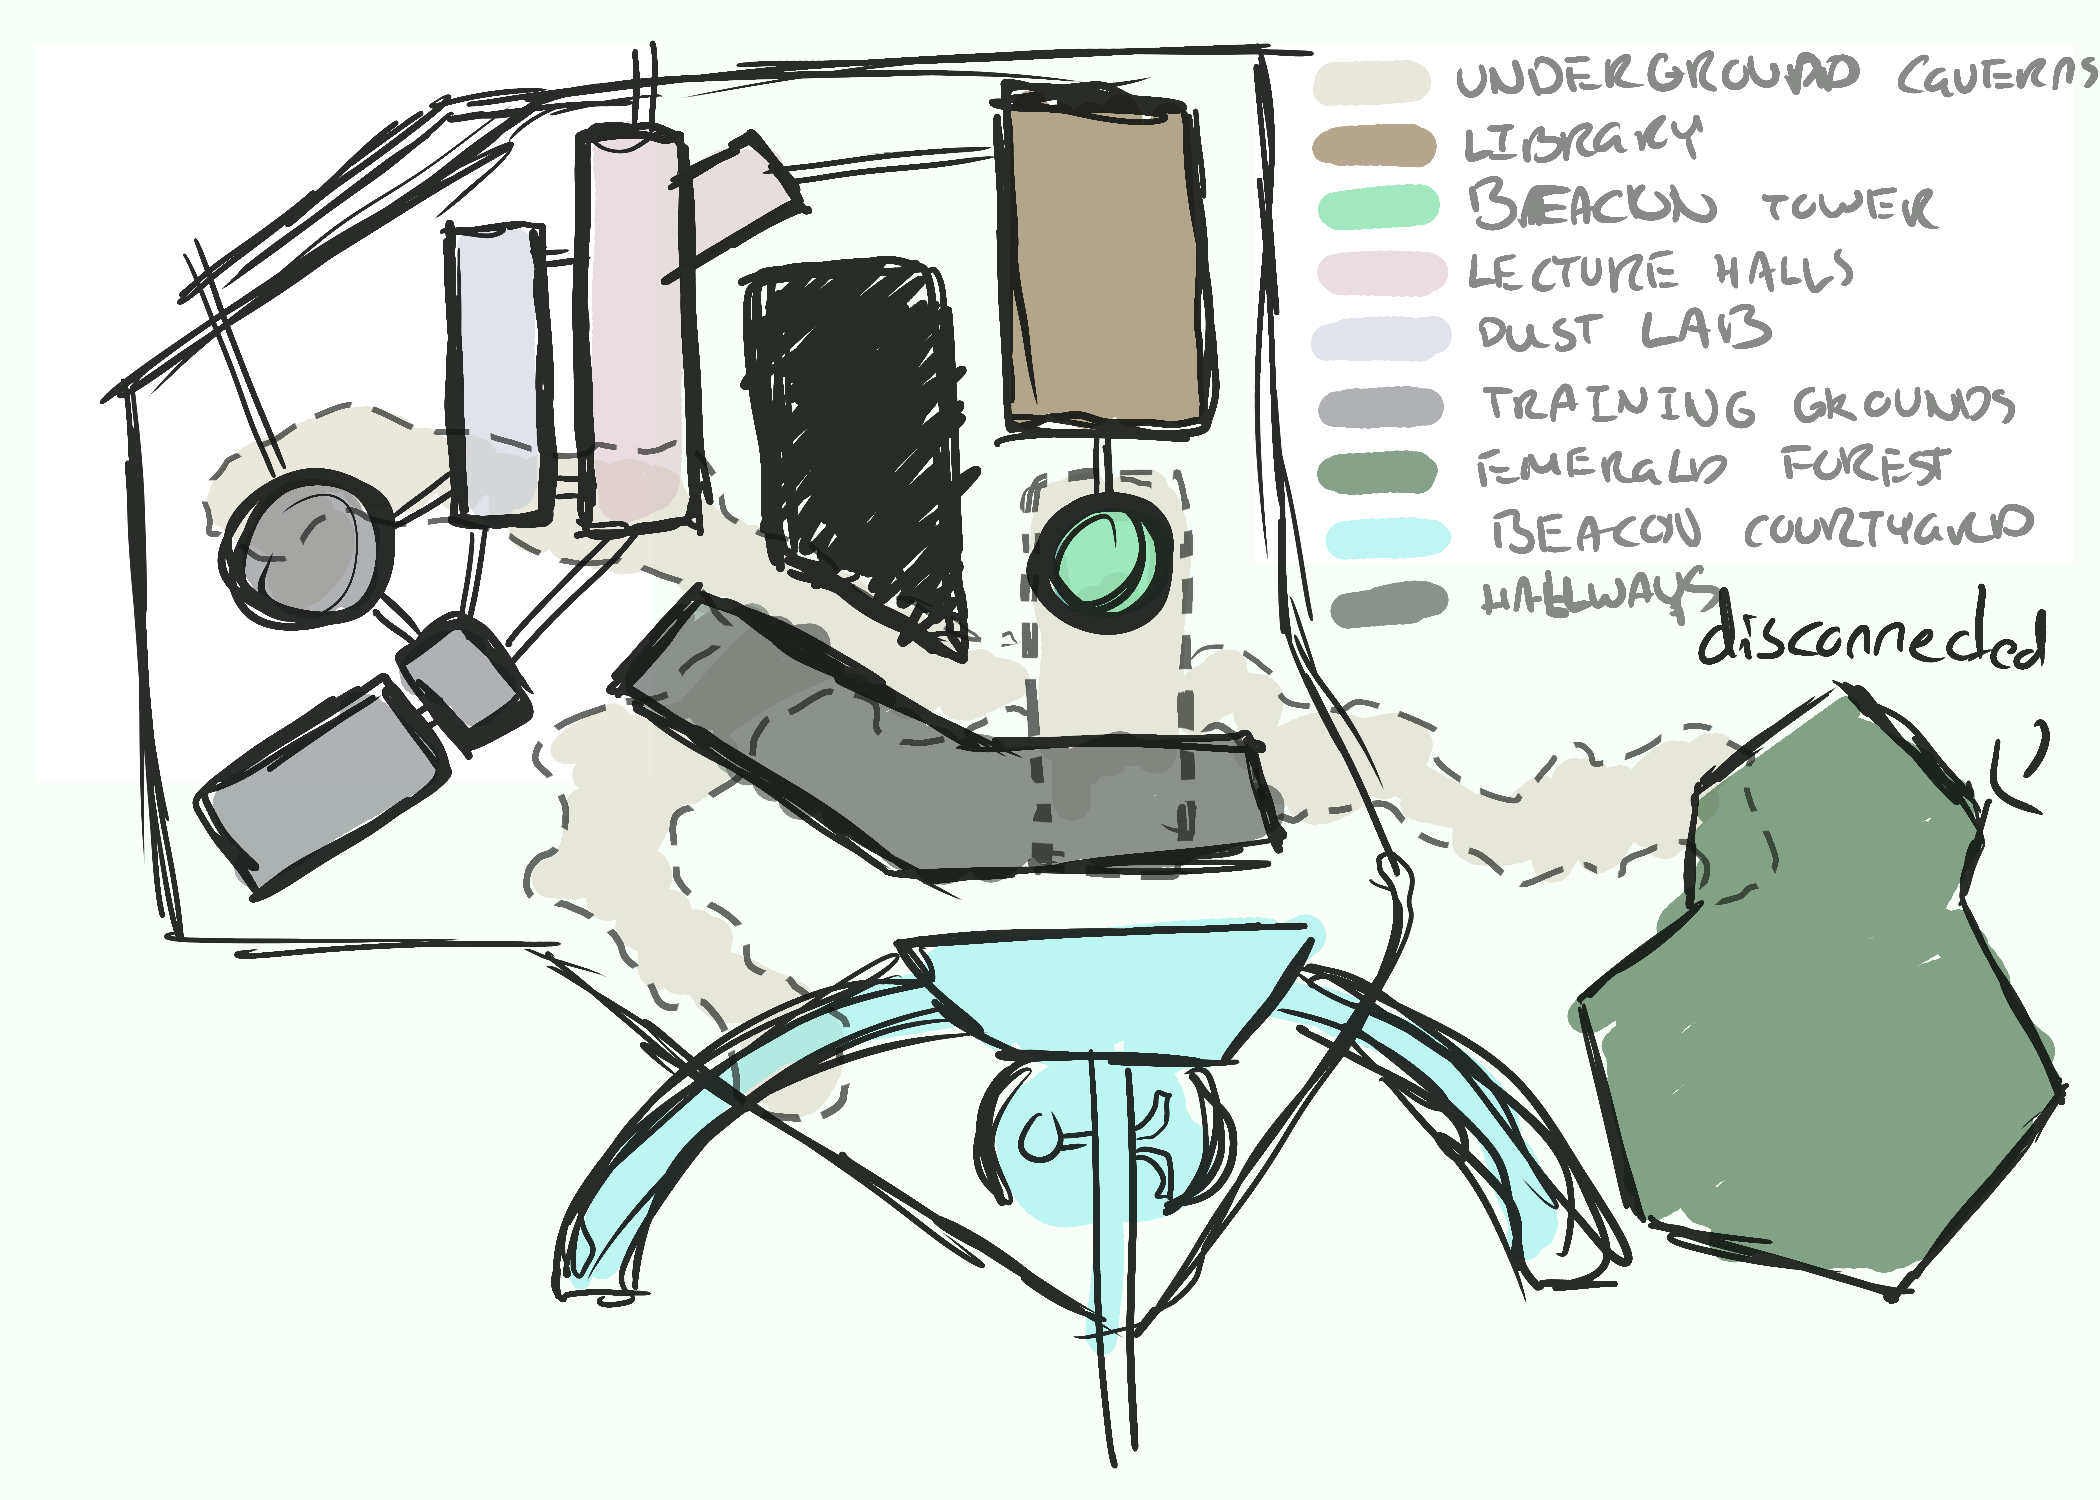 UNDERGROUND CAVERNS
LIBRARY
BEACON TOWER
LECTURE HALLS
DUST LAB
TRAINING GROUNDS
EMERALD FOREST
BEACON COURTYARD
HALLWAYS
disconnected